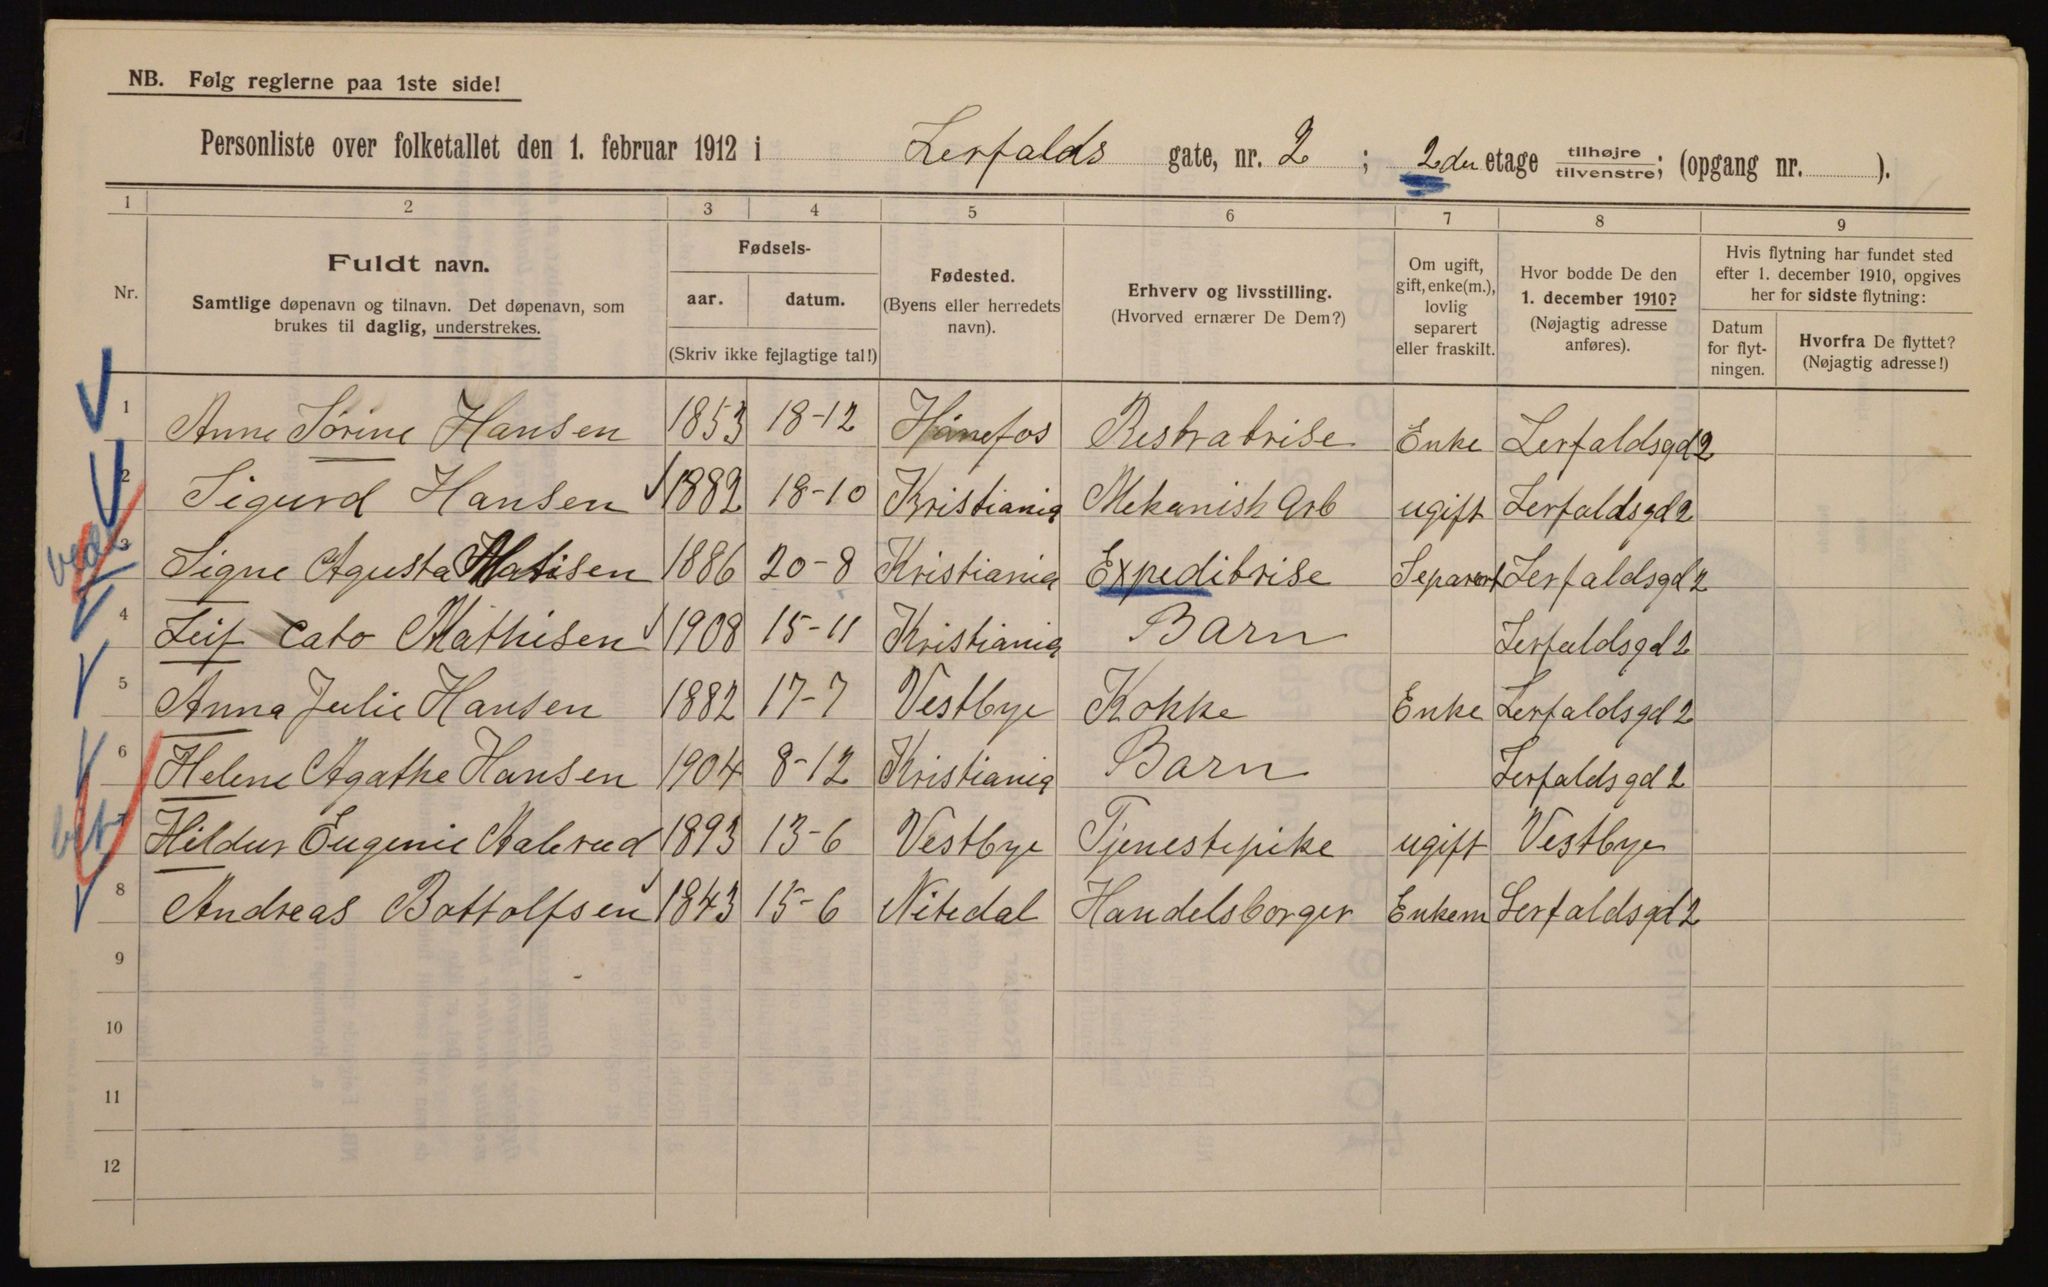 NB. Følg reglerne paa 1ste side!
Personliste over folketallet den 1. februar 1912 i Lerfalds gate, nr. 2 ; 2den etage tilhøjre/tilvenstre; (opgang nr. ).
1 2 3 4 5 6 7 8 9
Nr.
Fuldt navn.
Samtlige døpenavn og tilnavn. Det døpenavn, som
brukes til daglig, understrekes.
Fødsels-
aar. datum.
(Skriv ikke fejlagtige tal!)
Fødested.
(Byens eller herredets
navn).
Erhverv og livsstilling.
(Hvorved ernærer De Dem?)
Om ugift,
gift, enke(m.),
lovlig
separert
eller fraskilt.
Hvor bodde De den
1. december 1910?
(Nøjagtig adresse
anføres).
Hvis flytning har fundet sted
efter 1. december 1910, opgives
her for sidste flytning:
Datum
for flyt-
ningen.
Hvorfra De flyttet?
(Nøjagtig adresse!)
1 Anne Sørine Hansen 1853 18-12 Hønefos Restratrise Enke Lerfaldsgd 2
2 Sigurd Hansen 1882 18-10 Kristiania Mekanisk Arb ugift Lerfaldsgd 2
3 Signe Agusta Matisen 1886 20-8 Kristiania Expeditrise Separert Lerfaldsgd 2
4 Leif Cato Mathisen 1908 15-11 Kristiania Barn Lerfaldsgd 2
5 Anna Julie Hansen 1882 17-7 Vestbye Kokke Enke Lerfaldsgd 2
6 Helene Agathe Hansen 1904 8-12 Kristiania Barn Lerfaldsgd 2
7 Hildur Eugenie 1893 13-6 Vestbye Tjenestepike ugift Vestbye
8 Andreas Bottolfsen 1843 15-6 Nitedal Handelsborger Enkem Lerfaldsgd 2
9
10
11
12